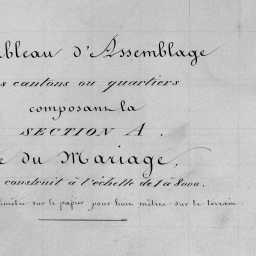 bleau d'Assemblage
s cantons ou quartiers
composant la
SECTION A.
du Mariage.
construit à l'échelle de 1 à 8000.
sur le papier pour huit mètres sur le terrain